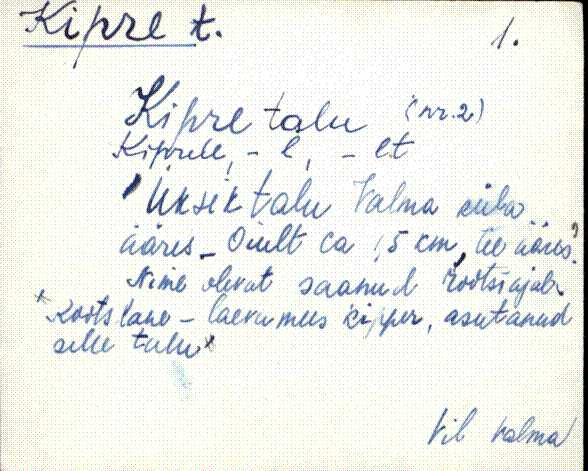 Kipre t.
1.
Kipre talu (nr. 2)
Kiprele, -l, -lt
Üksik talu Valma küla
ääres. Oiult ca 1,5 km, tee ääres.
Nime olevat saanud rootsiajal.
* Rootslane - laevamees kipper, asutanud
selle talu *
Vil Valma